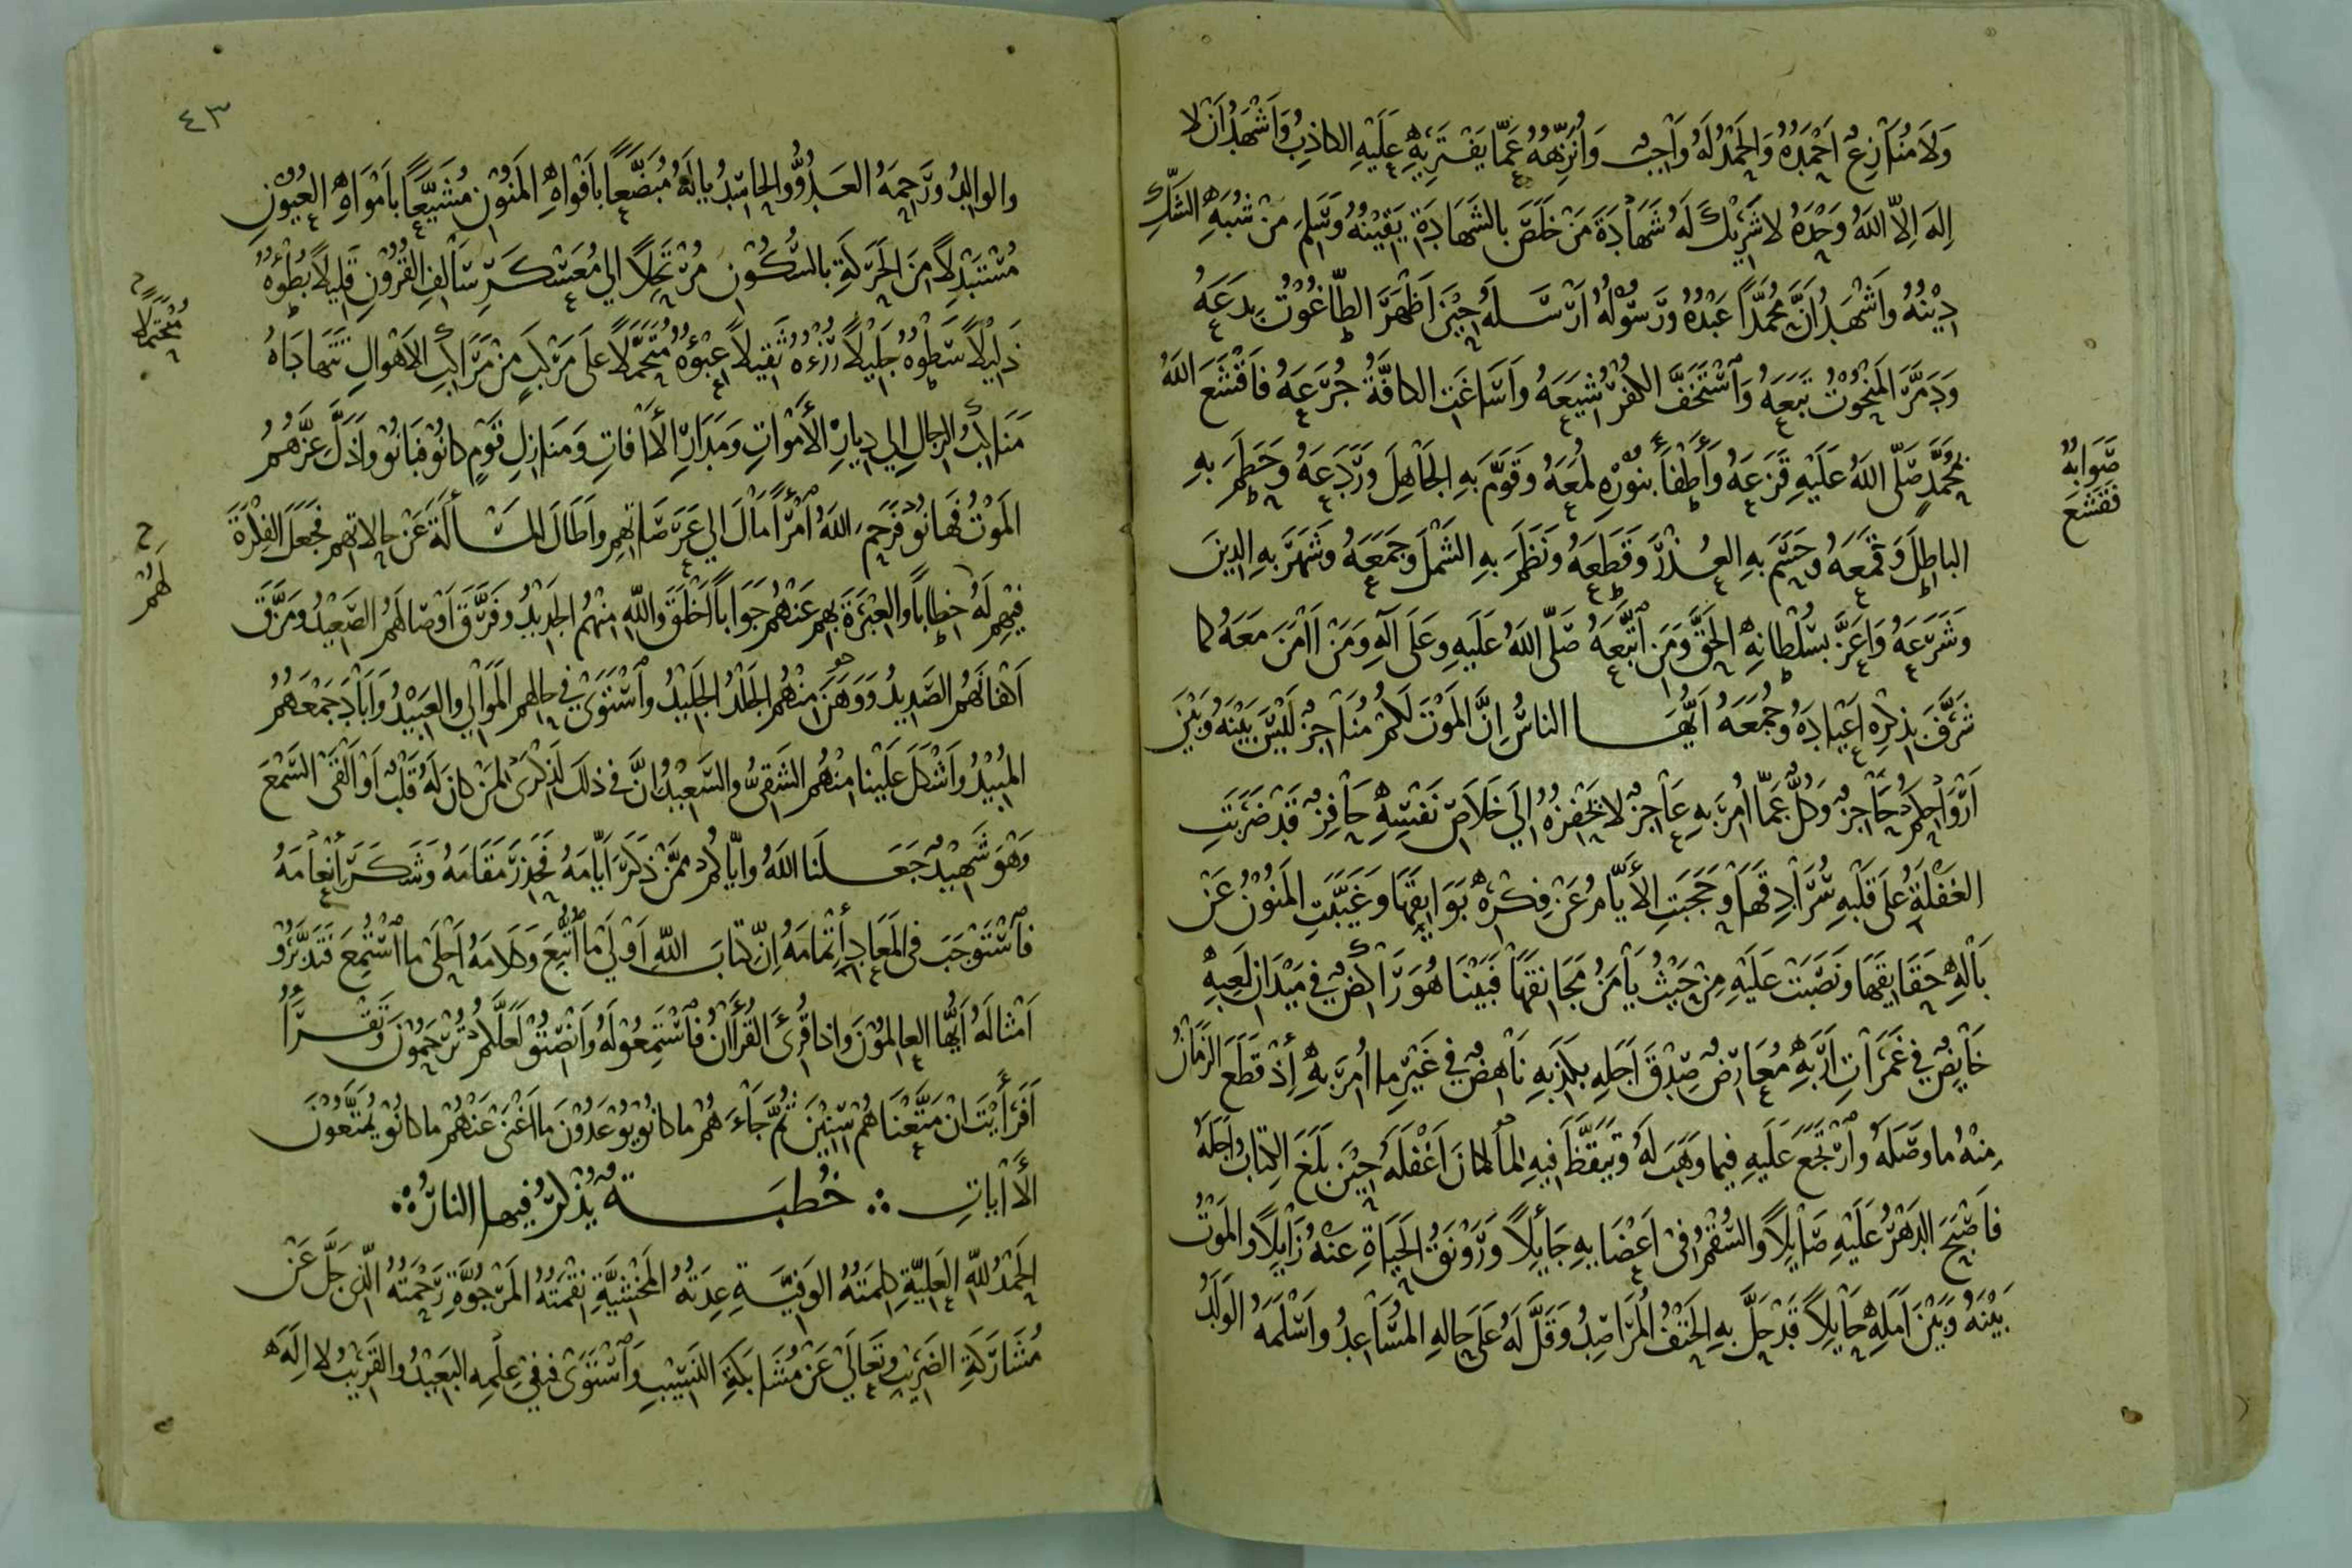 وَلَا مُنَازِعٌ اَحْمَدُهُ وَالحَمْدُ لَهُ وَاْجِبٌ وَاُنَزِّهُهُ عَمَّا يَفْتَرِيْهِ عَلَيْهِ الكاذِبُ وَاَشْهَدُ اَنْ لا
اِلهَ اِلاَّ اللهُ وَحْدَهُ لا شَرِيْكَ لَهُ شَهَاْدَةَ مَنْ خَلَصَ بالشَّهَادَةِ يَقِيْنُهُ وَسَلِمَ مِنْ شُبَهِ الشَّكِّ
دِيْنُهُ وَاَشْهَدُ اَنَّ مُحَمَّدًا عَبْدُهُ وَرَسُوْلُهُ اَرْسَلَهُ حِيْنَ اَظْهَرَ الطَّاغُوْتُ بِدَعَهُ
وَدَمَّرَ المَنْحُوْتُ تَبَعَهُ وَاَسْتَخَفَّ الكُفْرُ شِيَعَهُ وَاَسَاغَتِ الكافَّةُ جُرَعَهُ فَاَقْشَعَ اللهُ
بِمُحَمَّدٍ صَلَّى اللهُ عَلَيْهِ قَزَعَهُ وَأَطْفَأَ بِنُوْرِهِ لُمَعَهُ وَقَوَّمَ بِهِ الجَاْهِلَ وَرَدَعَهُ وَحَطَمَ بِهِ
صَوَابُهُ
فَقَشَعَ
الباطِلَ وَقَمَعَهُ وَحَسَمَ بِهِ العُذْرَ وَقَطَعَهُ وَنَظَمَ بِهِ الشَّمْلَ وَجَمَعَهُ وَشَهَرَ بِهِ الدِينَ
وَشَرَعَهُ وَاَعَزَّ بِسُلْطانِهِ الحَقَّ وَمَنِ اَتَّبَعَهُ صَلَّى اللهُ عَلَيهِ وَعَلَى آلِهِ وَمَنْ اَامَنَ مَعَهُ كما
شَرَّفَ بِذِكْرِهِ اَعْيَادَهُ وَجُمَعَهُ اَيُّهَا الناسُ اِنَّ المَوْتَ لَكُمْ مُنَاْجِزٌ لَيْسَ بَيْنَهُ وَبَيْنَ
اَرْوَاْحِكُمْ حَاْجِزٌ وَكُلٌّ عَمَّا اُمِرَ بِهِ عَاْجِزٌ لا يَحْفِزُهُ اِلَى خَلَاْصِ نَفْسِهِ حَاْفِزٌ قَدْ ضَرَبَتِ
الغَفْلَةُ عَلَى قَلْبِهِ سُرَاْدِقَهَا وَحَجَبَتِ الأَيَّامُ عَنْ فِكْرِهِ بَوَايِقَهَا وَغَيَّبَتِ المَنُوْنُ عَنْ
بَالِهِ حَقَايِقَهَا وَنَصَبَتْ عَلَيْهِ مِنْ حَيْثُ يَأْمَنُ مَجَانِقَهَا فَبَيْنَا هُوَ رَاكِضٌ فِي مَيْدَانِ لَعِبِهِ
خَايِضٌ فِي غَمَرَاتِ اَرَبِهِ مُعَارِضٌ صِدْقَ اَجَلِهِ بِكَذِبِهِ نَاْهِضٌ فِي غَيْرِ ما اُمِرَ بِهِ إِذْ قَطَعَ الزَمَانُ
مِنْهُ ما وَصَلَهُ وَاَرْتَجَعَ عَلَيهِ فِيمَا وَهَبَ لَهُ وَتَيَقَّظَ فِيهِ لِمَا كانَ اَغْفَلَهُ حِيْنَ بَلَغَ الكِتَابُ اَجَلَهُ
فَاَصْبَحَ الدَهْرُ عَلَيْهِ صَاْيِلاً وَالسُّقْمُ فِى اَعْضَايِهِ جَايِلاً وَرَوْنَقُ الحَيَاةِ عَنْهُ زَاْيِلاً وَالمَوْتُ
بَيْنَهُ وَبَيْنَ اَمَلِهِ حَاْيِلاً قَدْ حَلَّ بِهِ الحَتْفُ المُرَاصِدُ وَقَلَّ لَهُ عَلَى حَالِهِ المُسَاْعِدُ وَاَسْلَمَهُ الوَلَدُ
٤٣
والوالِدُ وَرَحِمَهُ العَدُوُّ والحَاسِدُ يالَهُ مُبَضَّعًا بِاَفْوَاهِ المَنُوْنِ مُشَيَّعًا بِاَمْوَاهِ العُيُوْنِ
مُسْتَبْدِلاً مِنَ الحَرَكَةِ بالسُّكُوْنِ مُرْتَحِلاً اِلى مُعَسْكَرِ سَالِفِ القُرُوْنِ قَلِيلاً بُطْؤُهُ
ذَلِيْلاً سَطْوُهُ جَلِيْلاً رُزْءُهُ ثَقِيلاً عِبْؤُهُ مُتَحَمَّلاً عَلَى مَرْكَبٍ مِنْ مَرَاكِبِ الاَهْوالِ تَتَهَادَاهُ
مُحْتَمَلاً
مَنَاكِبُ الرِجالِ اِلى دِيَارِ الأَمْوَاتِ وَمَدَارِ الأَافَاتِ وَمَنَازِلِ قَوْمٍ كانُوْ فَبَانُوْ وَاَذَلَّ عِزَّهُمُ
المَوْتُ فَهَانُوْ فَرَحِمَ اللهُ اَمْرَأً مَالَ اِلى عَرَصَاتِهِمِ واَطَالَ المَسْأَلَةَ عَنْ حالاتِهِمِ فَجَعَلَ الفِكْرَةَ
لَهُمُ
فِيْهِمِ لَهُ خِطَاباً وَالعِبْرَةَ بِهِمِ عَنْهُمُ جَوَاباً اَخْلَقَ واللهِ مِنْهُمُ الجَدِيْدُ وَفَرَّقَ اَوْصَالَهُمُ الصَعِيْدُ وَمَزَّقَ
اَكْفَانَهُمُ الصَدِيدُ وَوَهَنَ مِنْهُمُ الجَلْدُ الجَلِيْدُ وَاَسْتَوَى فِي حَالِهِمِ المَوَالِي والعَبِيْدُ وَاَبَادَ جَمْعَهُمُ
المُبِيْدُ وَاَشْكَلَ عَلَيْنا مِنْهُمُ الشَقِيُّ والسَّعِيْدُ اِنَّ فِي ذلِكَ لَذِكْرَى لِمَنْ كانَ لَهُ قَلْبٌ اَوْ اَلْقَى السَّمْعَ
وَهْوَ شَهِيْدٌ جَعَلَنَا اللهُ وَاِيَّاكُمْ مِمَّنْ ذَكَرَ اَيَّامَهُ فَحَذِرَ مَقَامَهُ وَشَكَرَ أَنْعَاْمَهُ
فَاَسْتَوْجَبَ فِى المَعَادِ أَتْمَامَهُ اِنَّ كِتَابَ اللهِ اَوْلَى مَا اُتُّبِعَ وَكَلاَمَهُ اَحْلَى ما اُسْتُمِعَ فَتَدَبَّرُوْ
اَمْثالَهُ اَيُّها العالِمُوْنَ وَاِذا قُرِئَ القُرْأَانُ فَاَسْتَمِعُوْ لَهُ وَاَنْصِتُوْ لَعَلَّكُمْ تُرْحَمُوْنَ وَتَقْرَأُ
اَفَرَأَيْتَ اِنْ مَتَّعْنَاهُمْ سِنِيْنَ ثُمَّ جَاْءَهُمْ ما كانُوْ يُوْعَدُوْنَ مَا اَغْنَى عَنْهُمْ ما كانُوْ يُمَتَّعُوْنَ
الأَايَاتِ ؞ خُطْبَةٌ يُذْكَرُ فِيها النارُ ؞
الحَمْدُ للهِ العَلِيَّةِ كلِمَتُهُ الوَفِيَّةِ عِدَتُهُ المَخْشِيَّةِ نِقْمَتُهُ المَرْجُوَّةِ رَحْمَتُهُ الَّذِي جَلَّ عَنْ
مُشَارَكَةِ الضَرِيبِ وَتَعَالَى عَنْ مُشَابَكَةِ النَسِيْبِ وَاَسْتَوَى فِي عِلْمِهِ البَعِيْدُ والقَرِيْبُ لا اِلَهَ